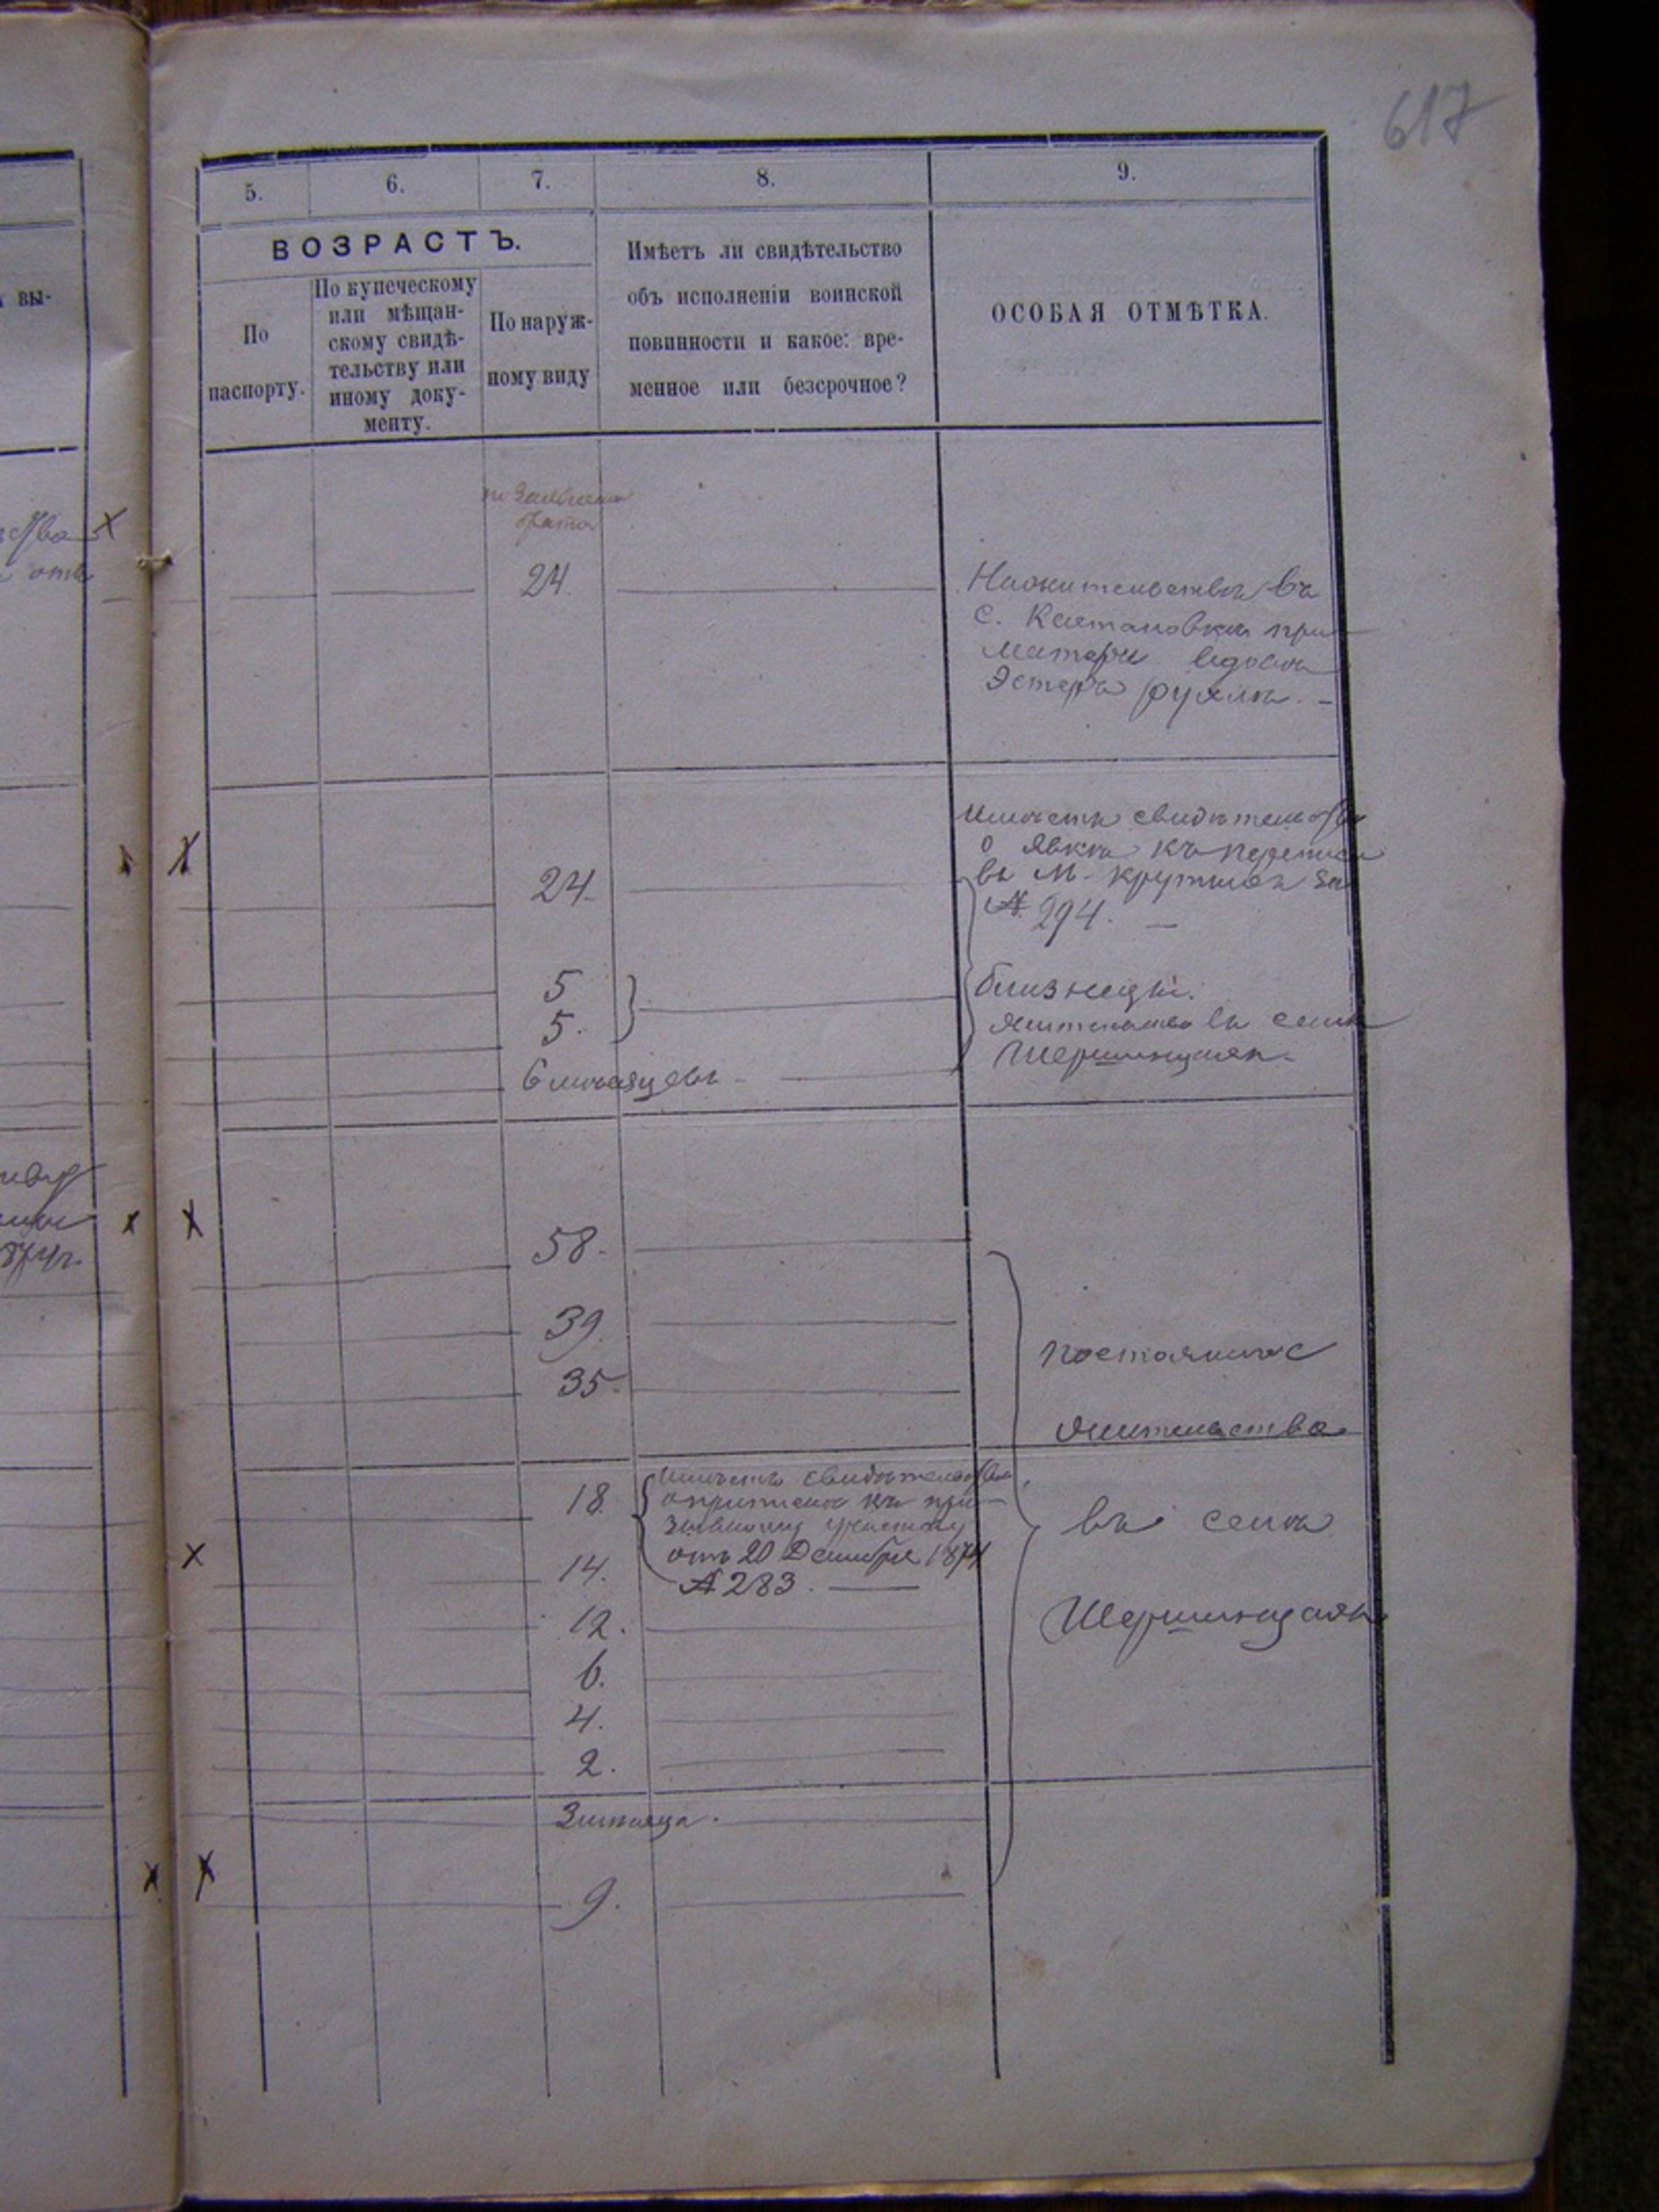 617
5. 6. 7. 8. 9.
ВОЗРАСТЪ.
По
паспорту.
По купеческому
или мѣщан-
скому свидѣ-
тельству или
иному доку-
менту.
По наруж-
ному виду
Имѣетъ ли свидѣтельство
объ исполненіи воинской
повинности и какое: вре-
менное или безсрочное?
ОСОБАЯ ОТМѢТКА.
вы-
отъ
по заявленію
брата
24.
въ
с. при
матери вдовѣ
Эстеръ
Имѣетъ свидѣтельство
о явкѣ къ переписи
въ м. за
№ 294.
24.
5
5.
6 мѣсяцевъ
близнецы.
жительство въ селѣ
Шершенцахъ
58.
39.
35.
постоянное
жительство
18.
Имѣетъ свидѣтельство
о припискѣ къ при-
зывному участку
отъ 20 Декабря 1874
№ 283.
въ селѣ
14.
12.
Шершенцахъ
6.
4.
2.
3 мѣсяца.
9.